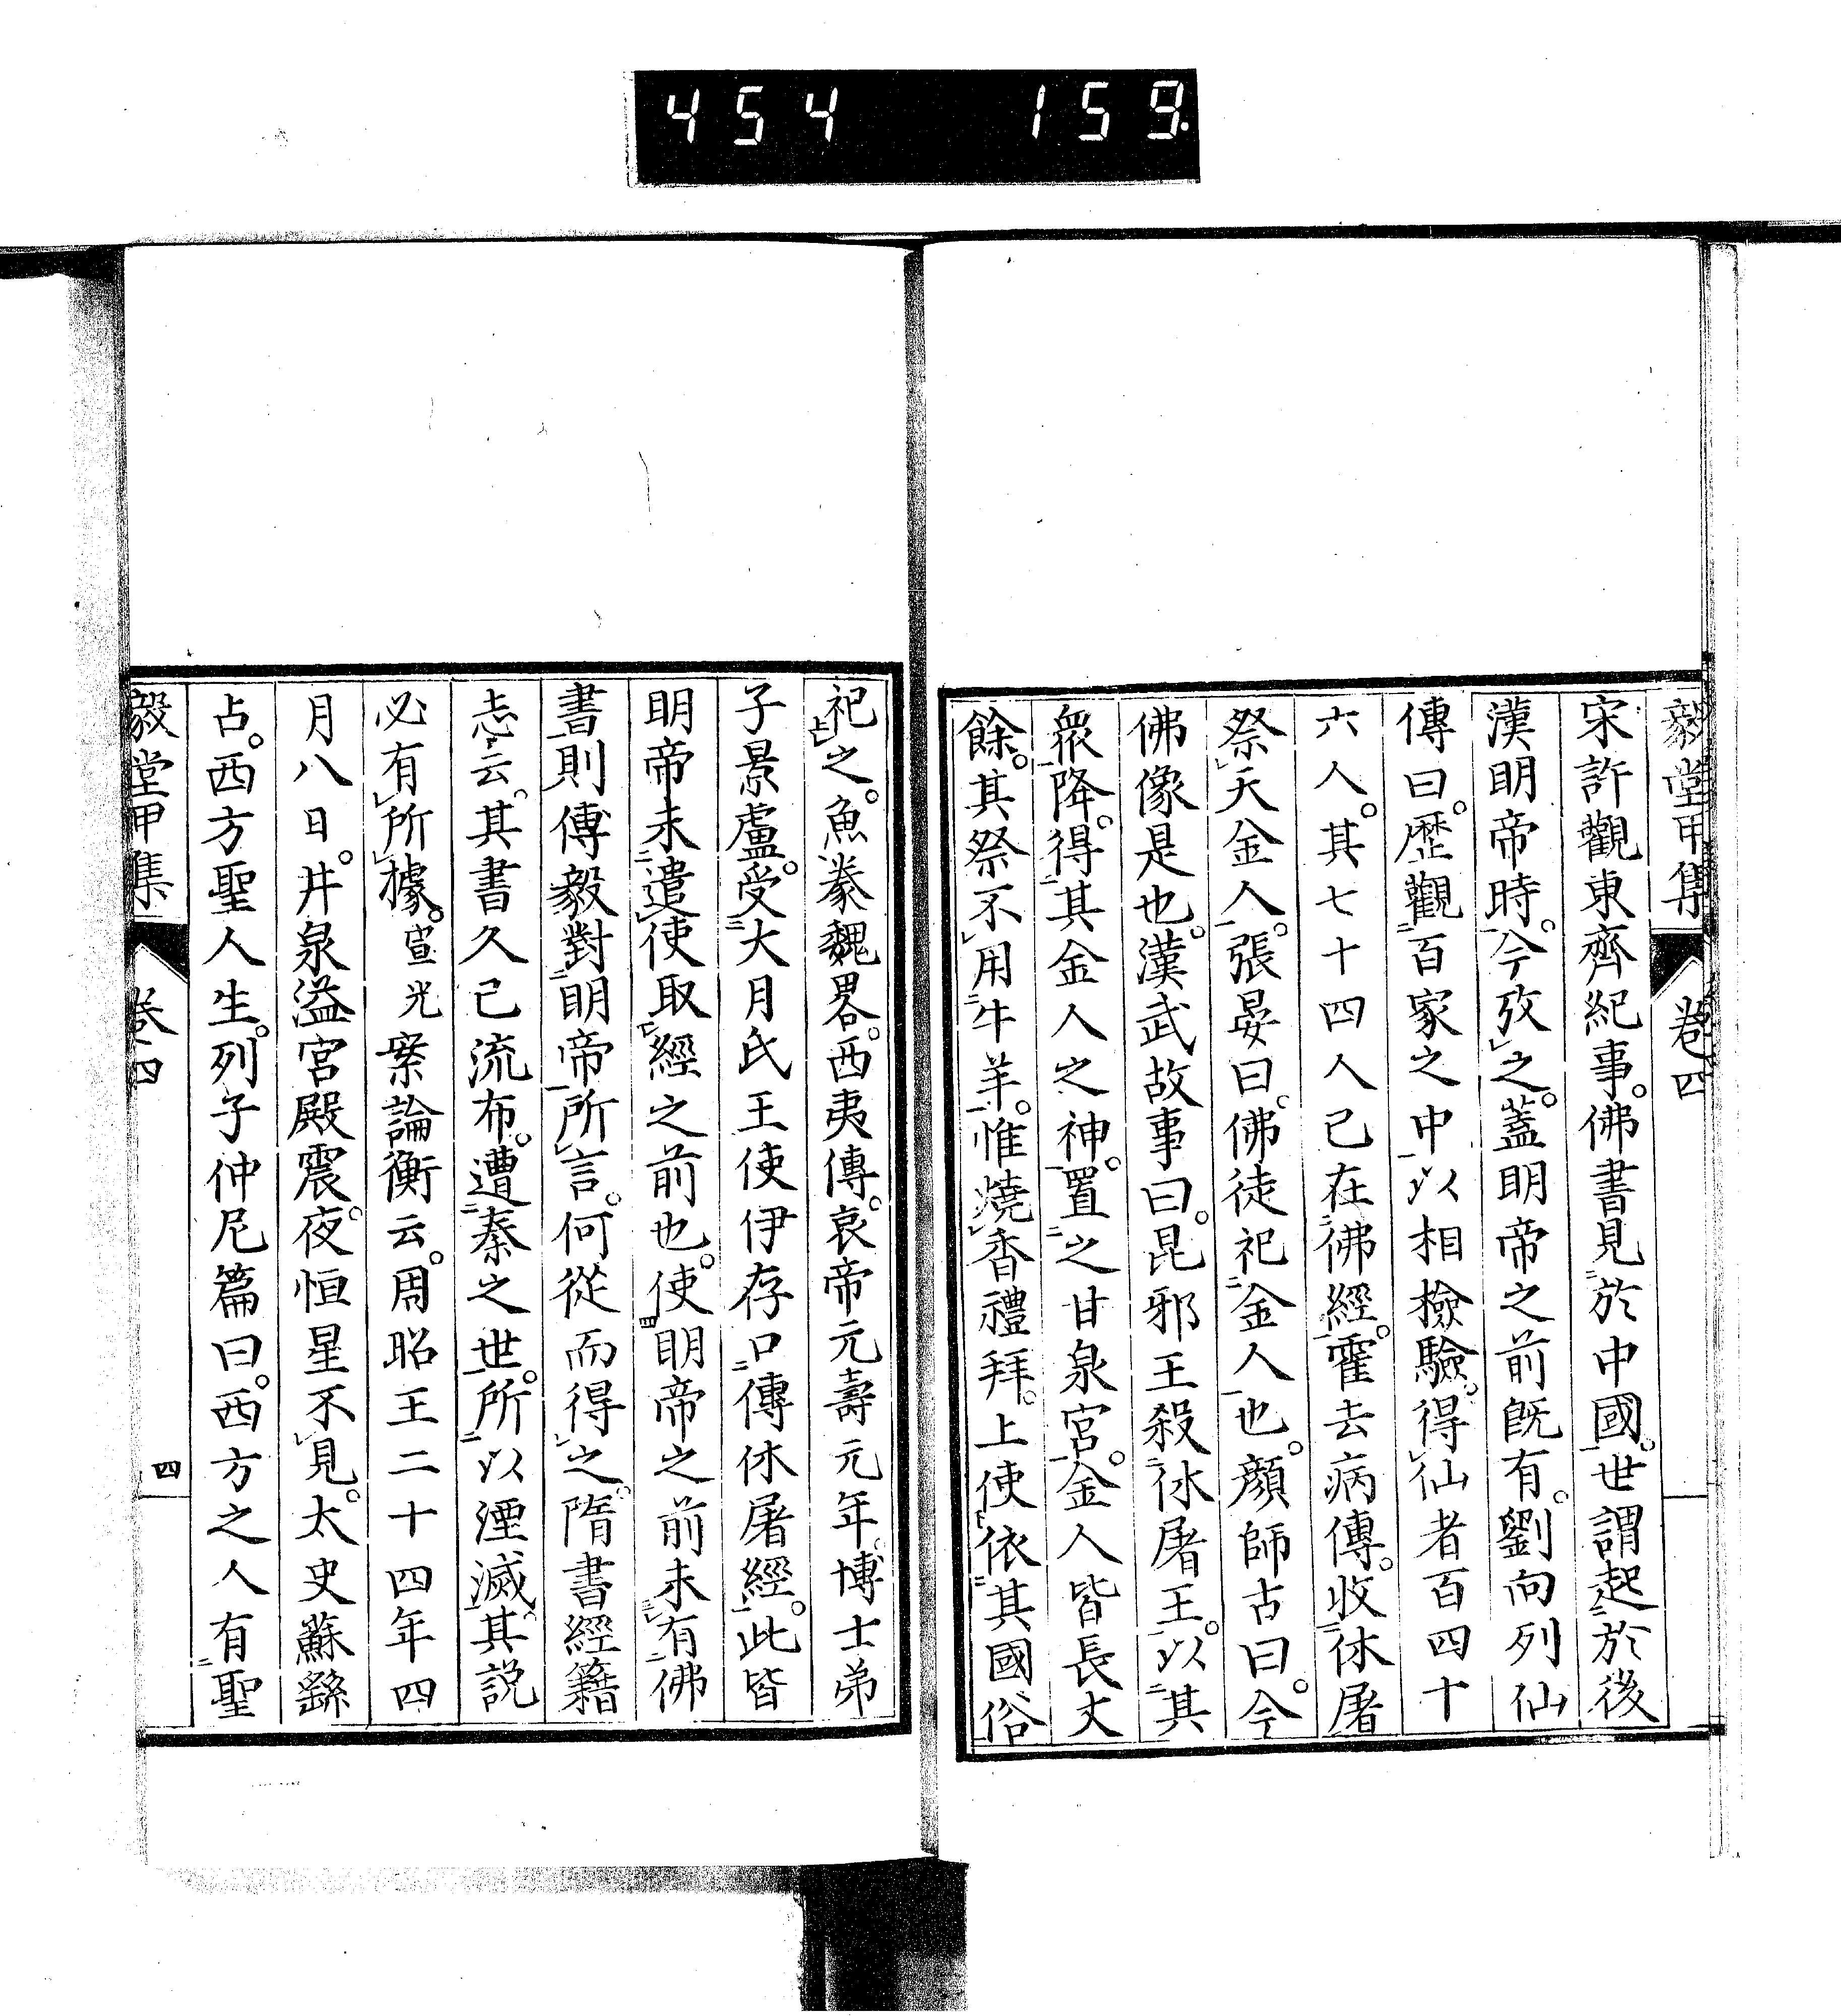 454 159.
毅堂甲集 卷四
宋許觀東齊紀事。佛書見於中國。世謂起於後
漢明帝時。今攷之。蓋明帝之前既有。劉向列仙
傳曰。歷觀百家之中以相檢驗。得仙者百四十
六人。其七十四人已在佛經。霍去病傳。收休屠
祭天金人。張晏曰。佛徒祀金人也。顏師古曰。今
佛像是也。漢武故事曰。昆邪王殺休屠王。以其
眾降。得其金人之神。置之甘泉宮。金人皆長丈
餘。其祭不用牛羊。惟燒香禮拜。上使依其國俗
祀之。魚豢魏畧。西夷傳。哀帝元壽元年。博士弟
子景盧。受大月氏王使伊存口傳休屠經。此皆
明帝未遣使取經之前也。使明帝之前未有佛
書則傳毅對明帝所言。何從而得之。隋書經籍
志云。其書久已流布。遭秦之世。所以湮滅。其説
必有所據。宣光案論衡云。周昭王二十四年四
月八日。井泉溢宮殿震。夜恒星不見。太史蘇繇
占。西方聖人生。列子仲尼篇曰。西方之人有聖
毅堂甲集 卷四 四